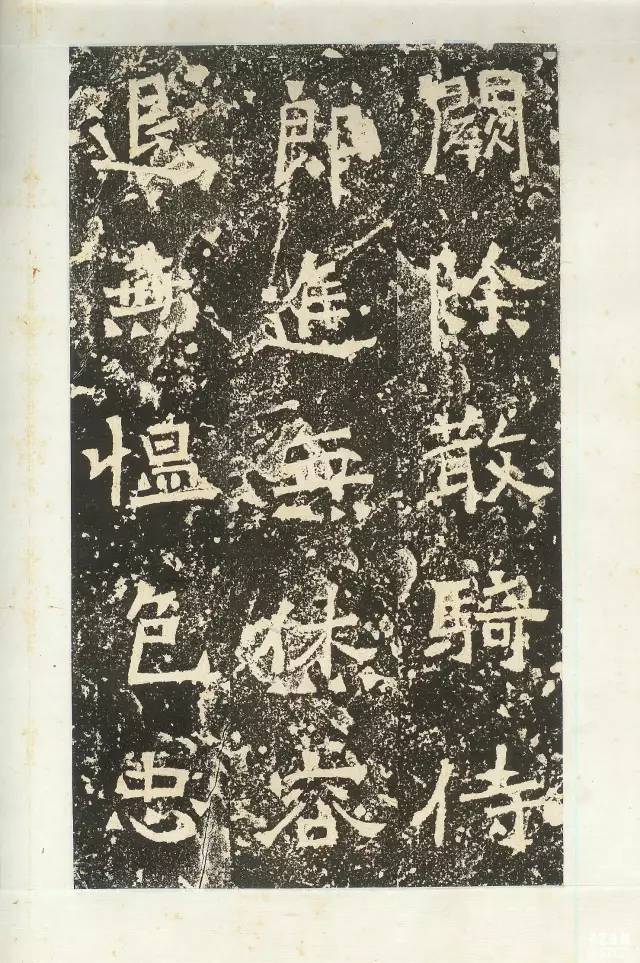 闕除散騎侍
郎進無怵容
退無愠色忠